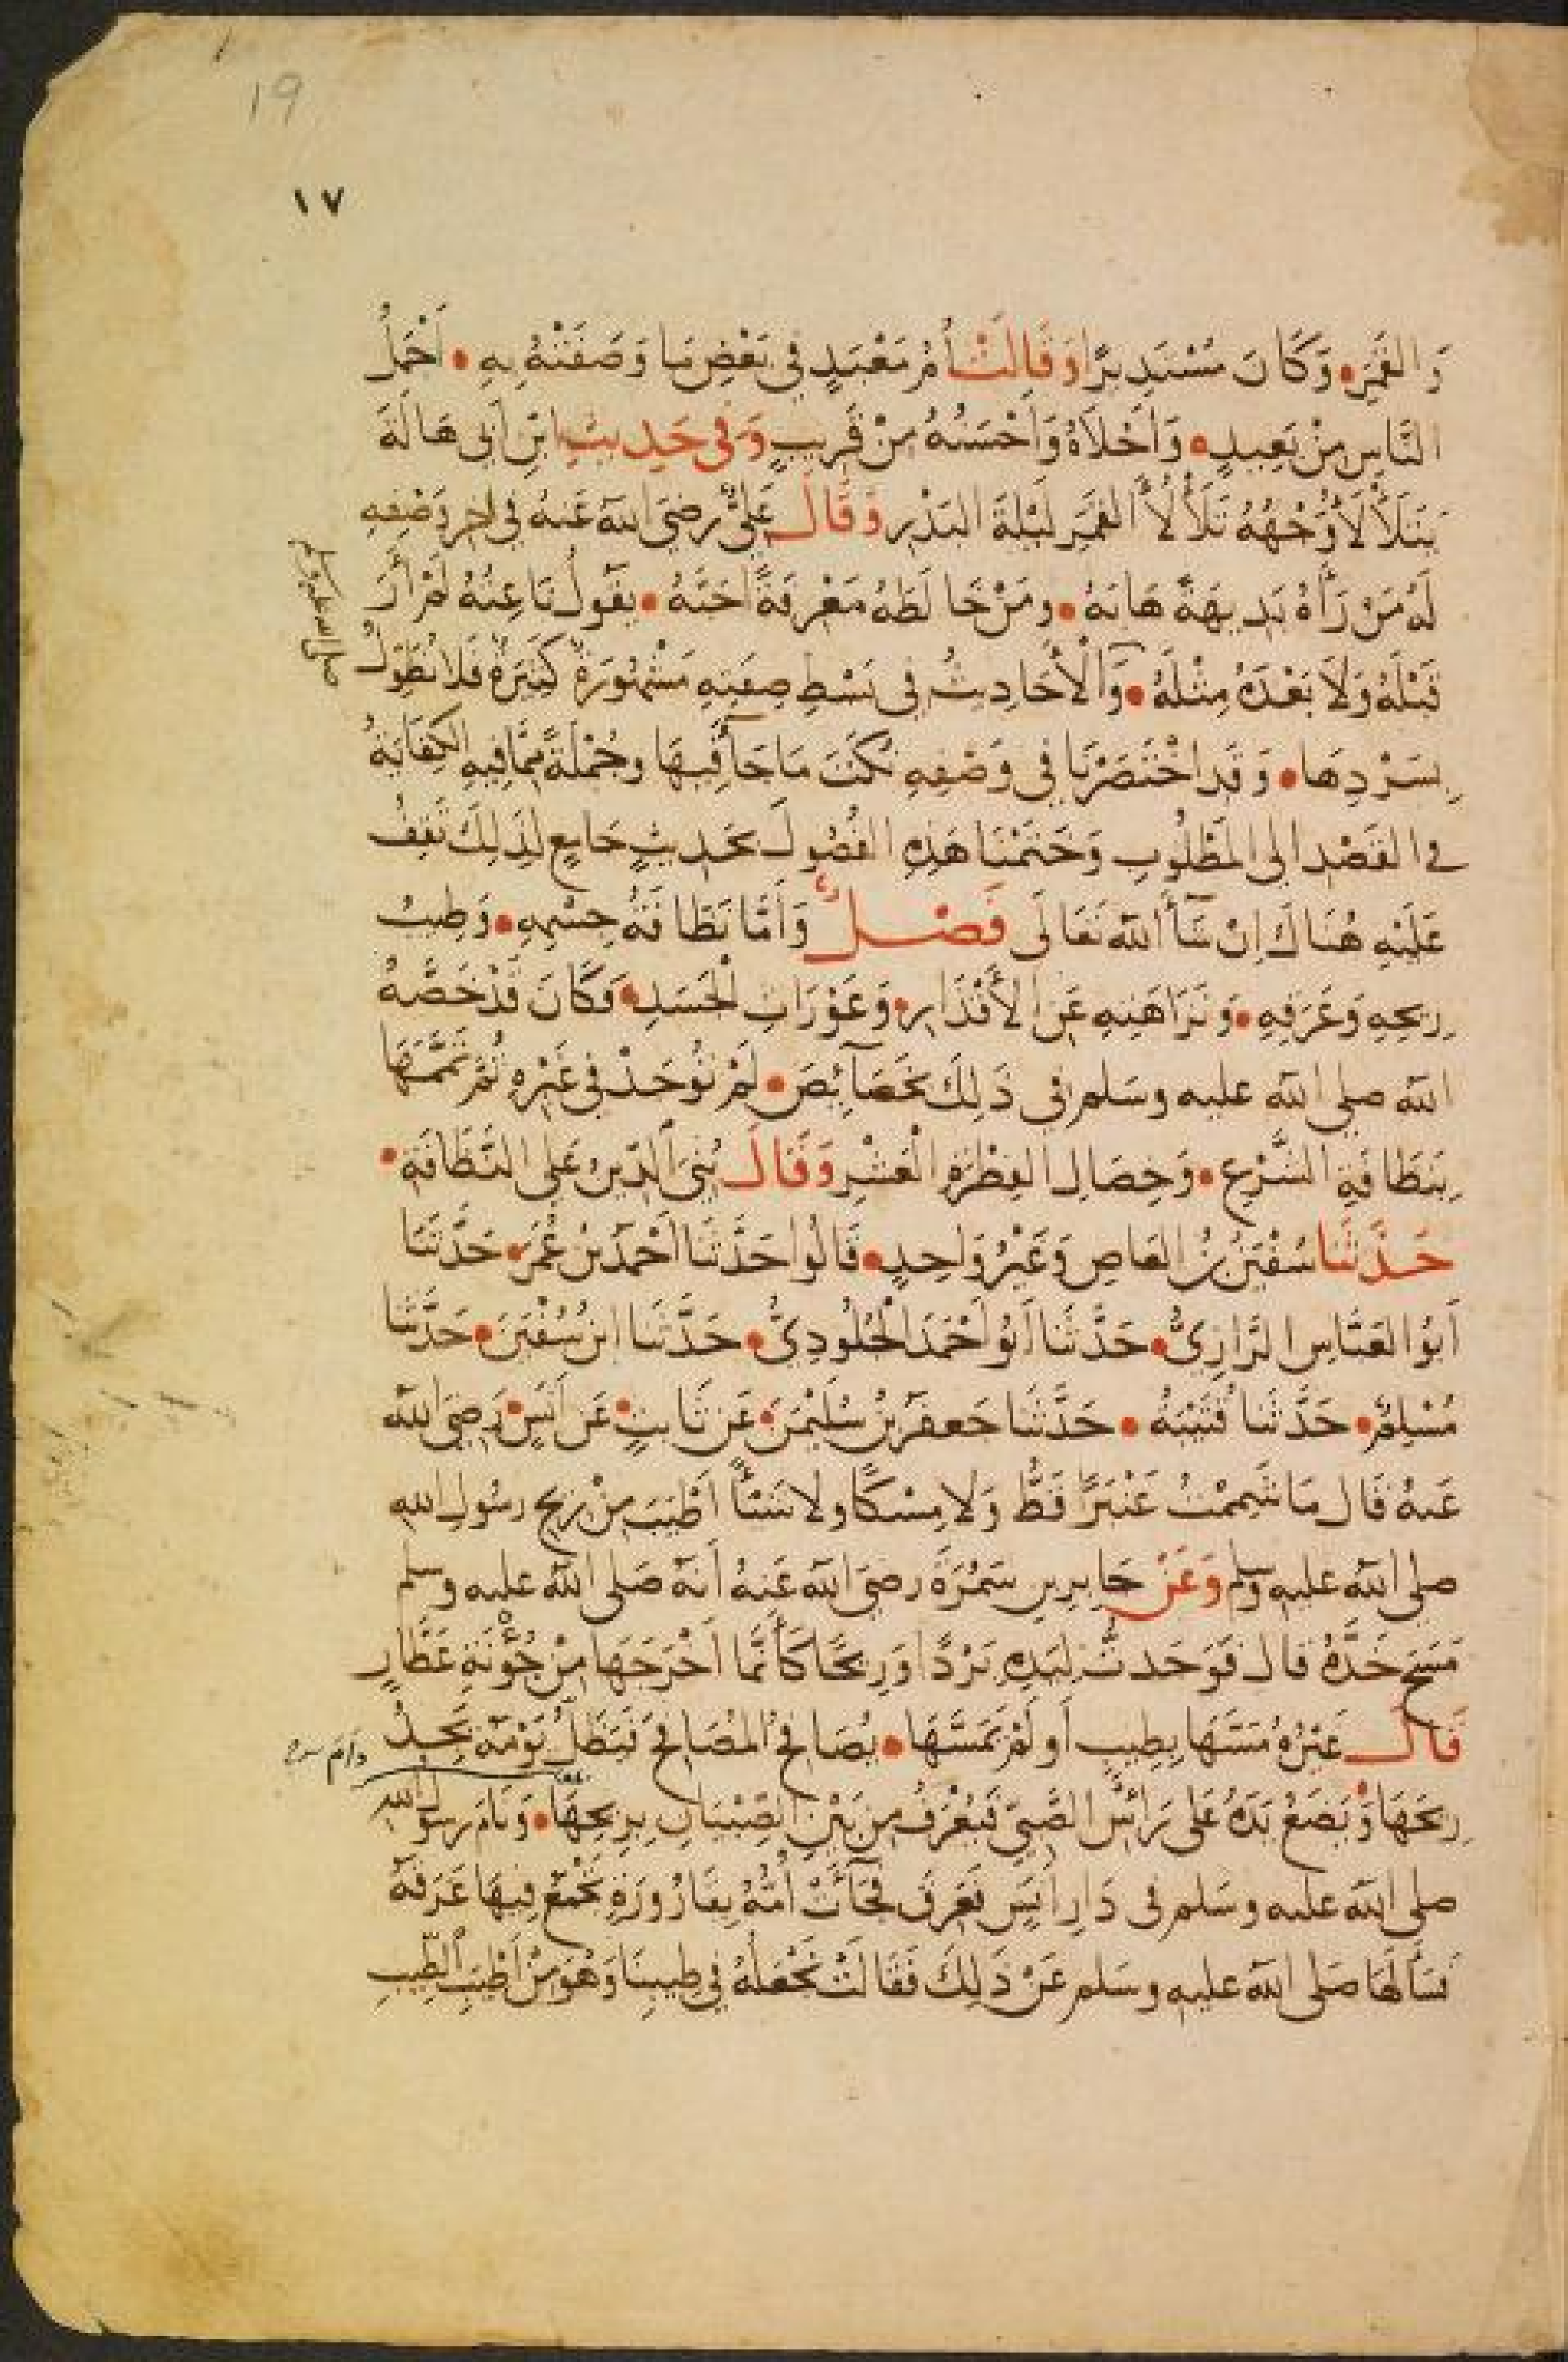 19
١٧
وَالقَمَرِ • وَكَانَ مُسْتَدِيرًا وَقَالَتْ أُمُّ مَعْبَدٍ فِي بَعْضِ مَا وَصَفَتْهُ بِهِ • أَجْمَلُ
النَّاسِ مِنْ بَعِيدٍ • وَأَحْلَاهُ وَأَحْسَنُهُ مِنْ قَرِيبٍ وَفِي حَدِيثِ ابْنِ أَبِي هَالَةَ
يَتَلَأْلَأُ وَجْهُهُ تَلَأْلُأَ القَمَرِ لَيْلَةَ البَدْرِ وَقَالَ عَلِيٌّ رضِيَ اللهُ عَنهُ فِي آخِرِ وَصْفِهِ
صلى الله عليه وسلم
لَهُ مَنْ رَآهُ بَدِيهَةً هَابَهُ • ومَنْ خَالَطَهُ مَعْرِفَةً أَحَبَّهُ • يَقُولُ نَاعِتُهُ لَمْ أَرَ
قَبْلَهُ وَلَا بَعْدَهُ مِثْلَهُ • وَالْأَحَادِيثُ فِي بَسْطِ صِفَتِهِ مَشْهُورَةٌ كَثِيرَةٌ فَلَا نُطَوِّلُ
بِسَرْدِهَا • وَقَدِ اخْتَصَرْنَا فِي وَصْفِهِ نُكَتَ مَا جَآءَ فِيهَا وجُمْلَةً مِمَّا فِيهِ الكِفَايَةُ
فِي القَصْدِ إِلَى المَطْلُوبِ وَخَتَمْنَا هَذِهِ الفُصُولَ بِحَدِيثٍ جَامِعٍ لِذَلِكَ تَقِفُ
عَلَيْهِ هُنَاكَ إِنْ شَآءَ اللهُ تَعَالَى فَصْلٌ وَأَمَّا نَظَافَةُ جِسْمِهِ • وَطِيبُ
رِيحِهِ وَعَرَقِهِ • وَنَزَاهَتِهِ عَنِ الْأَقْذَارِ • وَعَوْرَاتِ الْجَسَدِ • فَكَانَ قَدْ خَصَّهُ
اللهُ صلى الله عليه وسَلم فِي ذَلِكَ بِخَصَآئِصَ • لَمْ تُوجَدْ فِي غَيْرِهِ ثُمَّ تَمَّمَهَا
بِنَظَافَةِ الشَّرْعِ • وَخِصَالِ الفِطْرَةِ الْعَشْرِ وَقَالَ بُنِيَ الدِّينُ عَلَى النَّظَافَةِ •
حَدَّثَنَا سُفْيَنُ بْنُ العَاصِ وَغَيْرُ وَاحِدٍ • قَالُوا حَدَّثَنَا أَحْمَدُ بْنُ عُمَرَ • حَدَّثَنَا
أَبُو العَبَّاسِ الرَّازِيُّ • حَدَّثَنَا أَبُو أَحْمَدَ الْجُلُودِيُّ • حَدَّثَنَا ابْنُ سُفْيَنَ • حَدَّثَنَا
مُسْلِمٌ • حَدَّثَنَا قُتَيْبَةُ • حَدَّثَنَا جَعفَرُ بْنُ سُلَيْمَنَ • عَنْ ثَابِتٍ • عَنْ أَنَسٍ • رَضِيَ اللهُ
عَنهُ قَالَ مَا شَمِمْتُ عَنْبَرًا قَطُّ وَلَا مِسْكًا ولَا شَيْئًا أَطْيَبَ مِنْ رِيحِ رسُولِ اللهِ
صلى الله عليه وسلم وَعَنْ جَابِرِ بنِ سَمُرَةَ رضِيَ اللهُ عَنهُ أَنهُ صَلى الله عليه وسلم
مَسَحَ خَدَّهُ قَالَ فَوَجَدتُّ لِيَدِهِ بَرْدًا وَرِيحًا كَأَنَّمَا أَخْرَجَهَا مِنْ جُؤْنَةِ عَطَّارٍ
قَالَ غَيْرُهُ مَسَّهَا بِطِيبٍ أَو لَمْ يَمَسَّهَا • يُصَافِحُ المُصَافِحَ فَيَظَلُّ يَوْمَهُ يَجِدُ
رِيحَهَا وَيَضَعُ يَدَهُ عَلى رَأْسِ الصَّبِيِّ فَيُعْرَفُ مِن بَيْنِ الصِّبْيَانِ بِرِيحِهَا • وَنَامَ رسُولُ الله
صلى الله عليه وسَلم فِي دَارِ أَنَسٍ فَعَرِقَ فَجَآءَتْ أُمُّهُ بِقَارُورَةٍ تَجْمَعُ فِيهَا عَرَقَهُ
فَسَأَلَهَا صَلى الله عليه وسَلم عَنْ ذَلِكَ فَقَالَتْ نَجْعَلُهُ فِي طِيبِنَا وَهُوَ مِنْ أَطْيَبِ الطِّيبِ